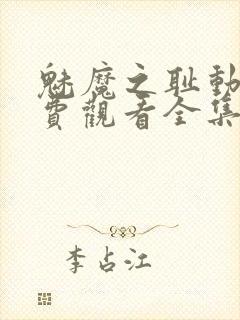 魅魔之耻動
費觀看全集
李占江